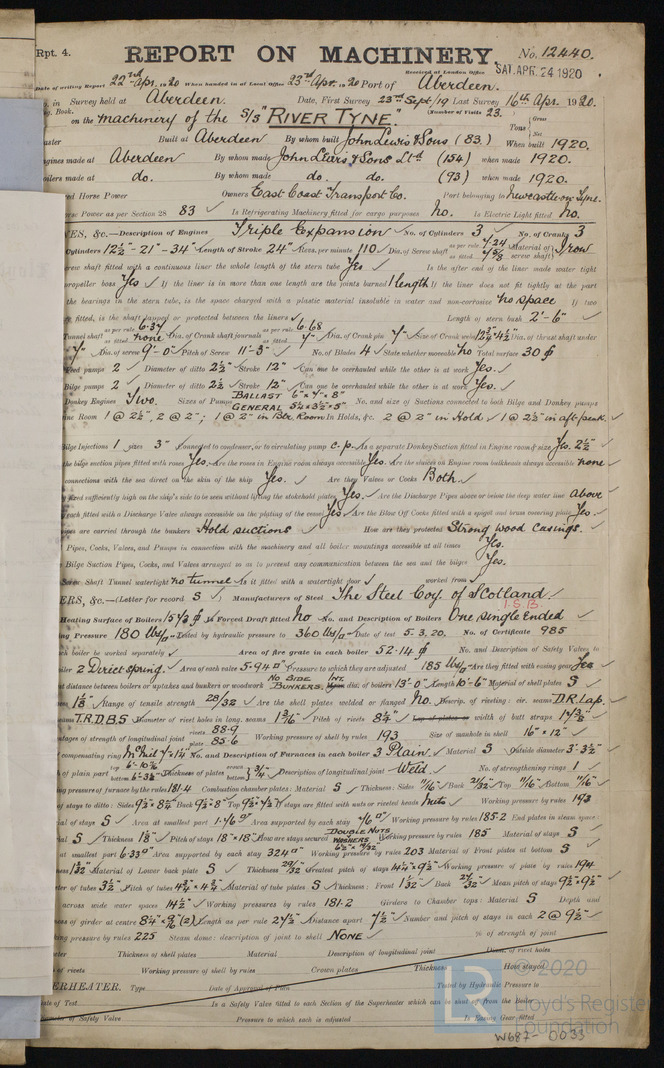 Rpt. 4.
REPORT ON MACHINERY.
No. 12440.
Received at London Office SAT. APR. 24 1920
Date of writing Report 22nd Apr. 1920 When handed in at Local Office 23rd Apr. 1920 Port of Aberdeen.
in Survey held at Aberdeen. Date, First Survey 23rd Sept/19 Last Survey 16th Apr. 1920.
Book. (Number of Visits 23.
on the machinery of the S/S "RIVER TYNE."
Tons Gross Net
Master Built at Aberdeen By whom built John Lewis & Sons (83.) When built 1920.
Engines made at Aberdeen By whom made John Lewis & Sons Ltd (154) when made 1920.
Boilers made at do. By whom made do. do. (93) when made 1920.
Horse Power Owners East Coast Transport Co. Port belonging to Newcastle on Tyne.
Horse Power as per Section 28 83 Is Refrigerating Machinery fitted for cargo purposes No. Is Electric Light fitted No.
ES, &c.—Description of Engines Triple Expansion No. of Cylinders 3 No. of Cranks 3
Cylinders 12½"-21"-34" Length of Stroke 24" Revs. per minute 110 Dia. of Screw shaft as per rule 7/24 as fitted Material of screw shaft Iron
screw shaft fitted with a continuous liner the whole length of the stern tube Yes Is the after end of the liner made water tight
propeller boss Yes If the liner is in more than one length are the joints burned 1 length If the liner does not fit tightly at the part
the bearings in the stern tube, is the space charged with a plastic material insoluble in water and non-corrosive No space If two
fitted, is the shaft lapped or protected between the liners Length of stern bush 2'-6"
Tunnel shaft as per rule 6.37 as fitted none Dia. of Crank shaft journals as per rule 6.68 as fitted 7" Dia. of Crank pin 7" Size of Crank webs 12¾"x4½" Dia. of thrust shaft under
7" Dia. of screw 9'-0" Pitch of Screw 11'-3" No. of Blades 4 State whether moveable No Total surface 30
Feed pumps 2 Diameter of ditto 2½" Stroke 12" Can one be overhauled while the other is at work Yes.
Bilge pumps 2 Diameter of ditto 2½ Stroke 12" Can one be overhauled while the other is at work Yes.
Donkey Engines Two. Sizes of Pumps BALLAST 6"x7"x8" GENERAL 5¼"x3½"x5" No. and size of Suctions connected to both Bilge and Donkey pumps
ine Room 1 @ 2½", 2 @ 2"; 1 @ 2" in Blr. Room In Holds, &c. 2 @ 2" in Hold 1 @ 2½" in aft-peak.
Bilge Injections 1 sizes 3" Connected to condenser, or to circulating pump C.P. Is a separate Donkey Suction fitted in Engine room & size Yes. 2½"
the bilge suction pipes fitted with roses Yes. Are the roses in Engine room always accessible Yes. Are the sluices on Engine room bulkheads always accessible none
connections with the sea direct on the skin of the ship Yes. Are they Valves or Cocks Both.
fixed sufficiently high on the ship's side to be seen without lifting the stokehold plates Yes. Are the Discharge Pipes above or below the deep water line above
each fitted with a Discharge Valve always accessible on the plating of the vessel Yes. Are the Blow Off Cocks fitted with a spigot and brass covering plate Yes.
pipes are carried through the bunkers Hold suctions How are they protected Strong wood casings.
Pipes, Cocks, Valves, and Pumps in connection with the machinery and all boiler mountings accessible at all times Yes.
Bilge Suction Pipes, Cocks, and Valves arranged so as to prevent any communication between the sea and the bilges Yes.
Screw Shaft Tunnel watertight No tunnel Is it fitted with a watertight door worked from
ERS, &c.—(Letter for record S) Manufacturers of Steel The Steel Coy. of Scotland.
I.S.B.
Heating Surface of Boilers Is Forced Draft fitted No No. and Description of Boilers One single Ended
ing Pressure 180 lbs/ Tested by hydraulic pressure to 360 lbs/ Date of test 5.3.20. No. of Certificate 985
each boiler be worked separately Area of fire grate in each boiler 52.14 No. and Description of Safety Valves to
boiler 2 Direct spring. Area of each valve 5.94 Pressure to which they are adjusted 185 lbs/ Are they fitted with easing gear Yes
st distance between boilers or uptakes and bunkers or woodwork NO SIDE BUNKERS. INT. dia. of boilers 13'-0" Length 10'-6" Material of shell plates S
1⅛" Range of tensile strength 28/32 Are the shell plates welded or flanged No. Descrip. of riveting: cir. seams D.R. Lap.
seams T.R.D.B.S Diameter of rivet holes in long. seams 1 3/16" Pitch of rivets 8¼" width of butt straps
ntages of strength of longitudinal joint rivets 88.9 plate 85.6 Working pressure of shell by rules 193 Size of manhole in shell 16"x12"
compensating ring No. and Description of Furnaces in each boiler 3 Plain. Material S Outside diameter 3'-3½"
of plain part Thickness of plates ¾" Description of longitudinal joint Weld No. of strengthening rings 1
ing pressure of furnace by the rules 181.4 Combustion chamber plates: Material S Thickness: Sides 11/16" Back 21/32" Top 11/16" Bottom 11/16"
of stays to ditto: Sides 9½"x8¾" Back 9½"x8" Top If stays are fitted with nuts or riveted heads Nuts Working pressure by rules 193
ial of stays S Area at smallest part Area supported by each stay Working pressure by rules 185.2 End plates in steam space:
ial S Thickness 1⅛" Pitch of stays 18"x18" How are stays secured DOUBLE NUTS WASHERS Working pressure by rules 185 Material of stays S
at smallest part 6.33 Area supported by each stay 324 Working pressure by rules 203 Material of Front plates at bottom S
Material of Lower back plate S Thickness 29/32 Greatest pitch of stays Working pressure of plate by rules 194
eter of tubes 3½" Pitch of tubes 4¾"x4¾" Material of tube plates S Thickness: Front 1 1/32" Back 27/32" Mean pitch of stays 9½"x9½"
across wide water spaces 14½" Working pressures by rules 181.2 Girders to Chamber tops: Material S Depth and
ess of girder at centre Length as per rule 27½" Distance apart 7½" Number and pitch of stays in each 2 @ 9½"
ing pressure by rules 225 Steam dome: description of joint to shell NONE % of strength of joint
eter Thickness of shell plates Material Description of longitudinal joint Diam. of rivet holes
of rivets Working pressure of shell by rules Crown plates Thickness How stayed
ERHEATER. Type Date of Approval of Plan Tested by Hydraulic Pressure to
ate of Test Is a Safety Valve fitted to each Section of the Superheater which can be shut off from the Boiler
Diameter of Safety Valve Pressure to which each is adjusted Is Easing Gear fitted
LR
© 2020
Lloyd's Register
Foundation
W687-0033